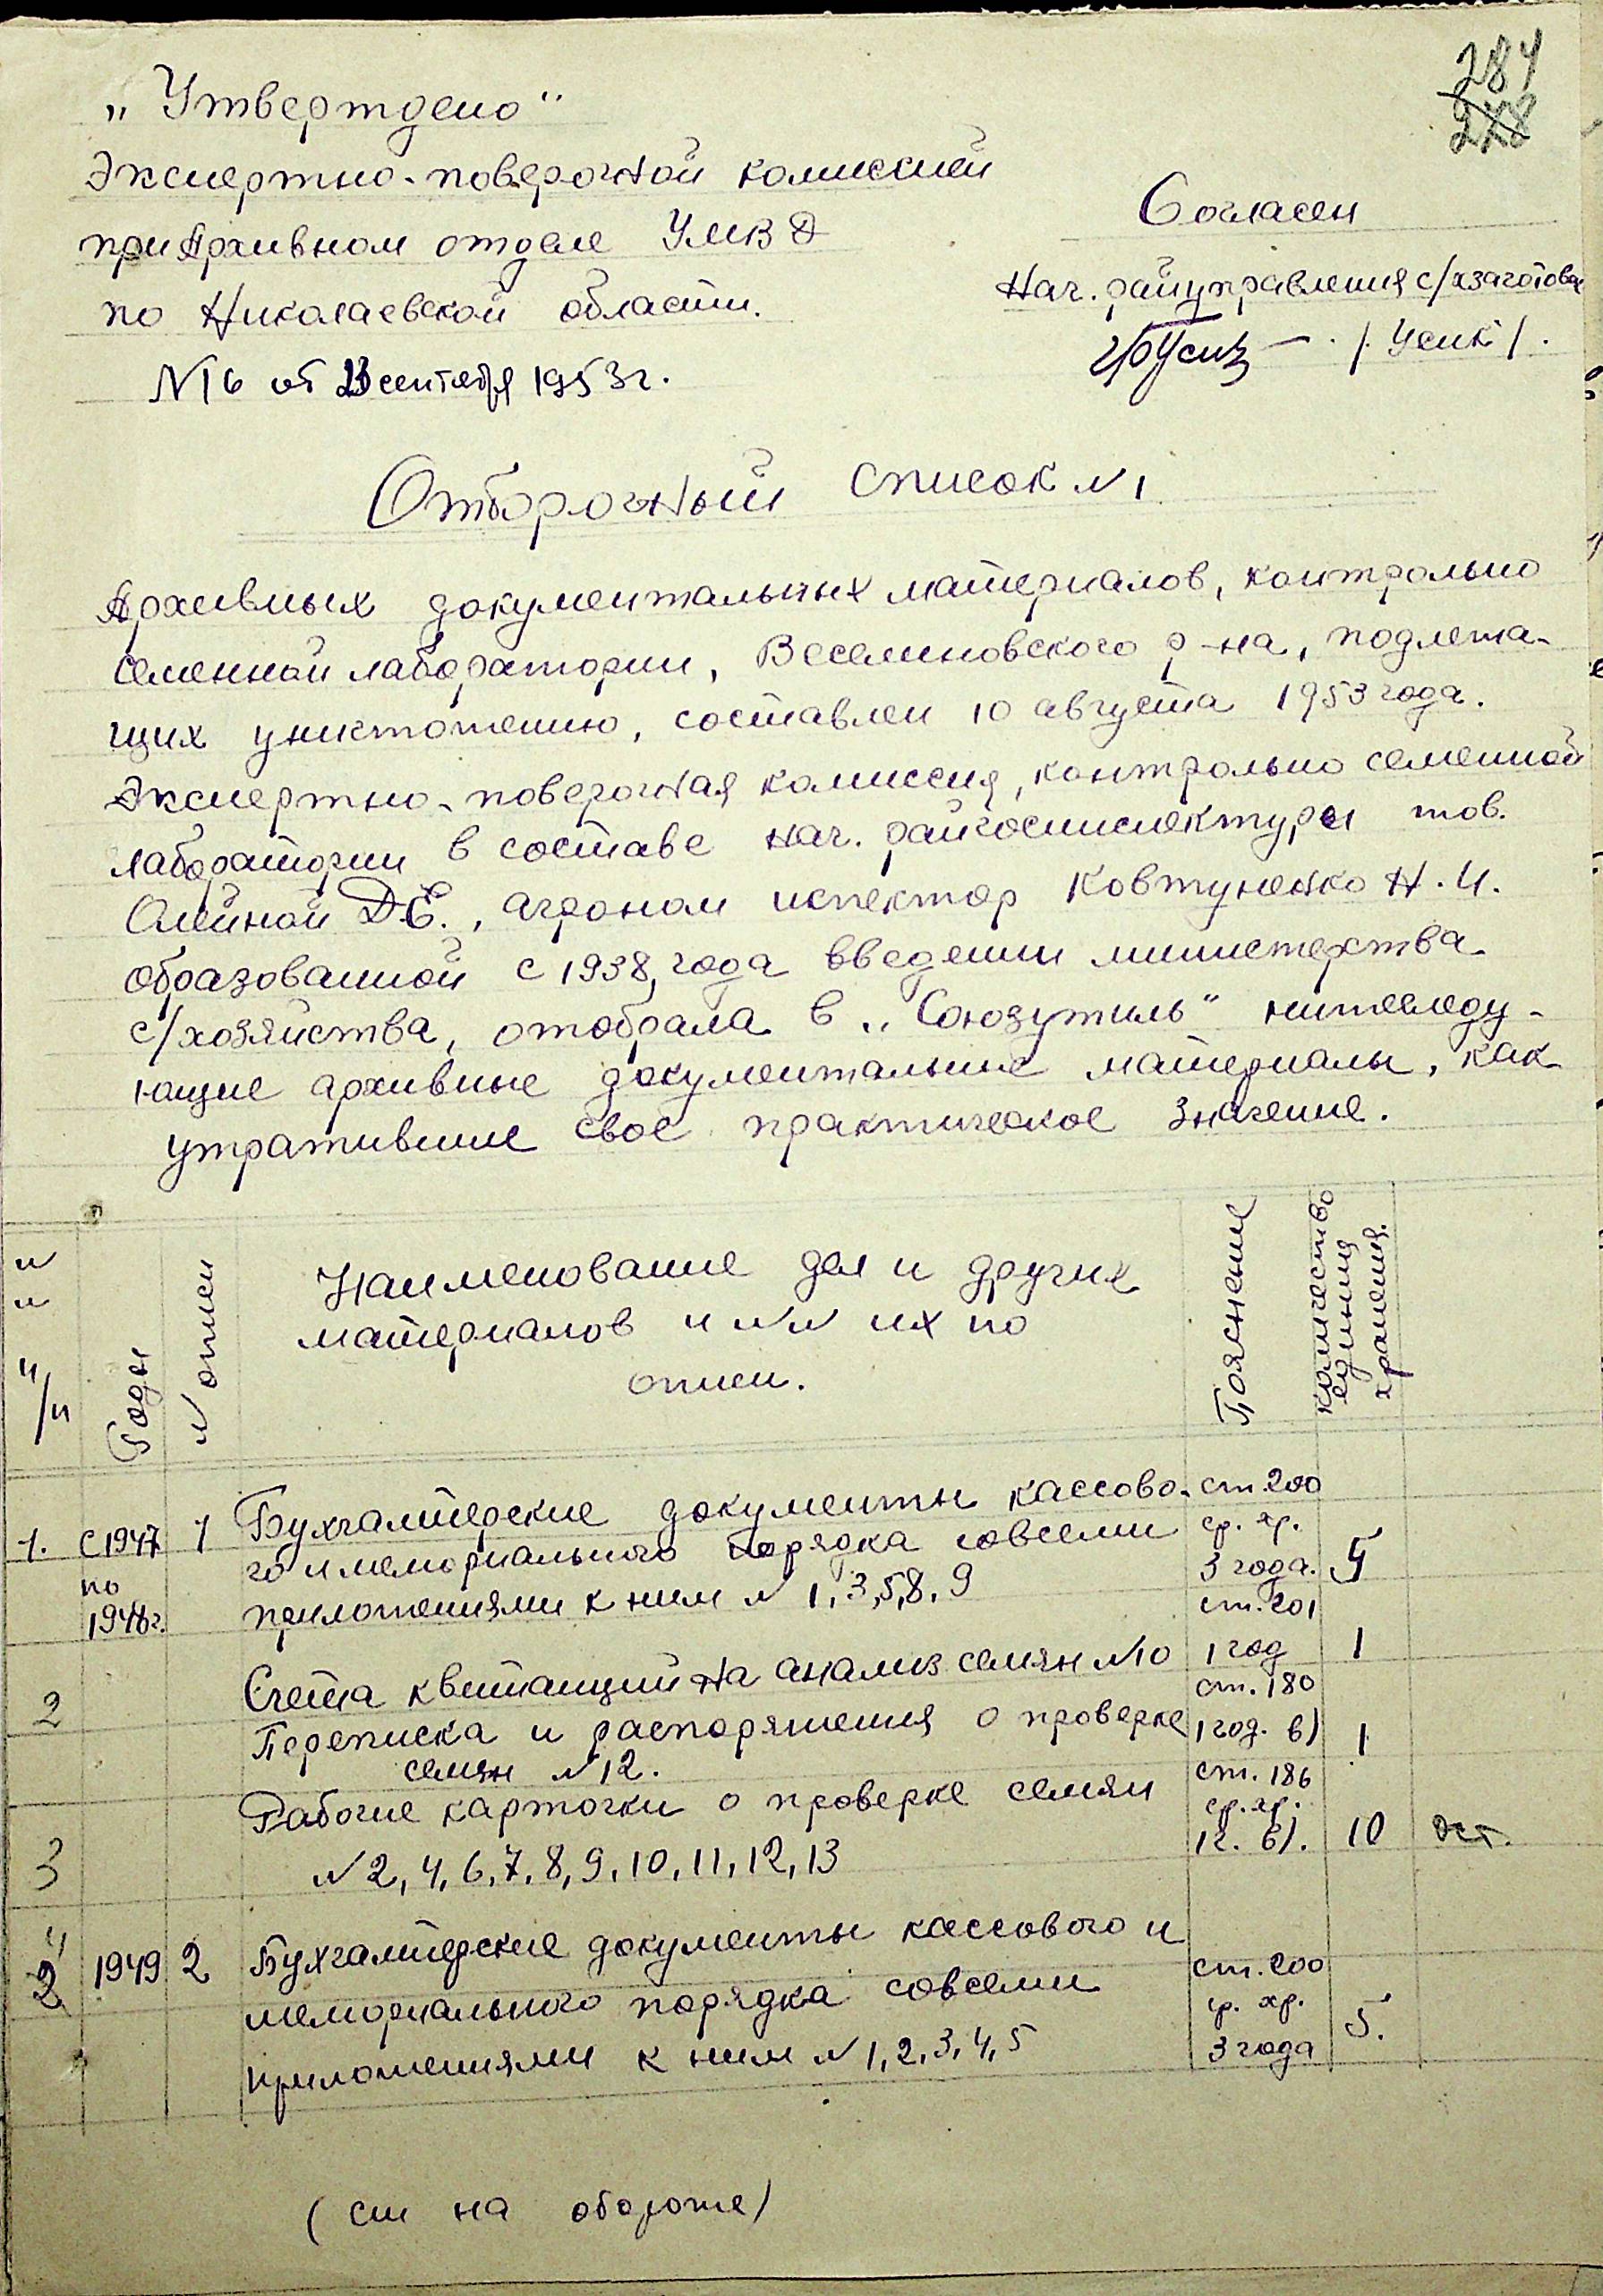 284
278
„Утверждено“
Экспертно-поверочной комиссией
при Архивном отделе УМВД
по Николаевской области.
N 16 от 23 сентября 1953 г.
Согласен
Нач. райуправления с/х заготовок
/. Усик /.
Отборочный список N 1
Архивных документальных материалов, контрольно
семенной лаборатории, Веселиновского р-на, подлежа-
щих уничтожению, составлен 10 августа 1953 года.
Экспертно-поверочная комиссия, контрольно семенной
лаборатории в составе нач. райгосинспектуры тов.
Олейной Д.Е., агроном испектор Ковтуненко Н.И.
образованной с 1938, года введении министерства
с/хозяйства, отобрала в „Союзутиль“ нижеследу-
ющие архивные документальные материалы, как
утратившие свое практическое значение.
N N п/п
Годы
N описи
Наименование дел и других
материалов и NN их по
описи.
Пояснение
количество
единиц
хранения.
1. с 1947 1 Бухгалтерские документы кассово- ст. 200
по го и мемориального порядка совсеми ср. хр.
1948г. приложениями к ним N 1, 3, 5, 8, 9 3 года. 5
ст. 201
2 Счета квитанций на анализ семян N 10 1 год 1
ст. 180
Переписка и распоряжения о проверке 1 год. в) 1
семян N 12.
ст. 186
3 Рабочие карточки о проверке семян ср. хр.
N 2, 4, 6, 7, 8, 9, 10, 11, 12, 13 1 г. в). 10 ост.
4
2 1949 2 Бухгалтерские документы кассового и
мемориального порядка совсеми ст. 200
ср. хр.
приложениями к ним N 1, 2, 3, 4, 5 3 года 5.
(см на обороте)